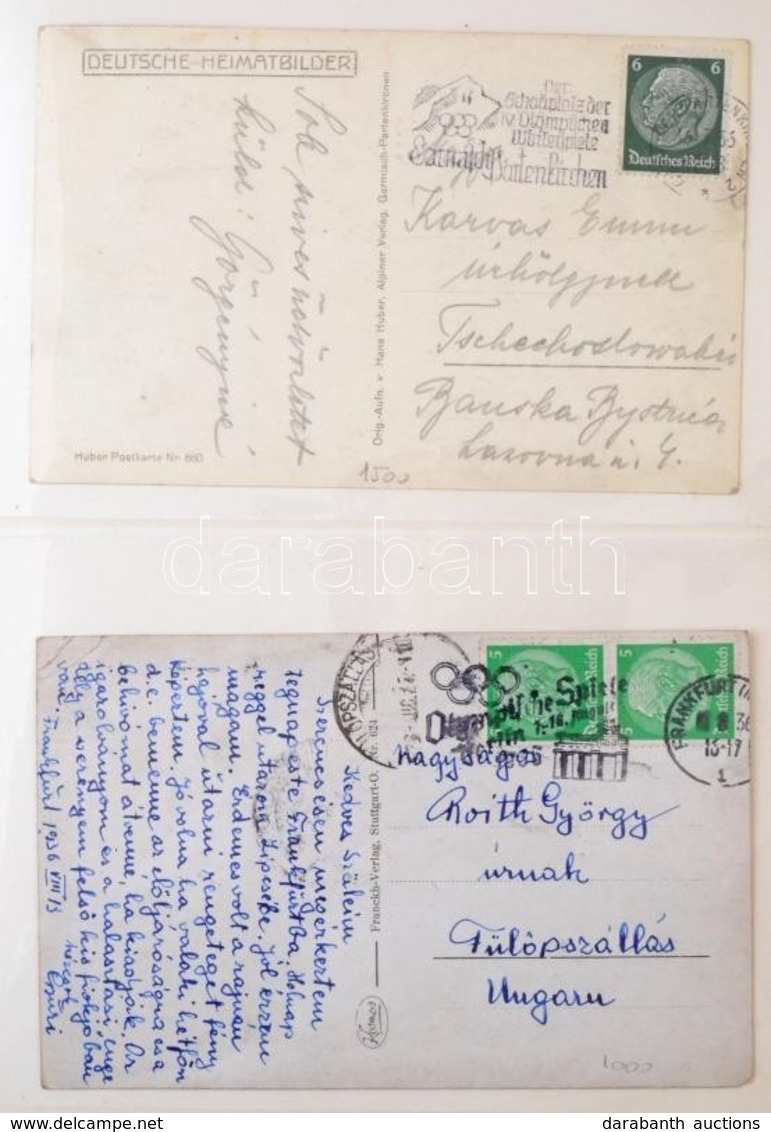 DEUTSCHE HEIMATBILDER
Sok szives üdvözletet
küld: Görgényiné
Huber Postkarte Nr 880
Orig.-Aufn. v. Hans Huber, Alpiner Verlag, Garmisch-Partenkirchen
Der
Schauplatz der
IV. Olympischen
Winterspiele
Garmisch
Partenkirchen
6 6
Deutsches Reich
Karvas Emmi
úrhölgynek
Tschechoslowakei
Banska Bystrica
Lazovna u. 4.
1500
darabanth
Kedves Szüleim
Szerencsésen megérkeztem
tegnap este Frankfurtba. Holnap
reggel utazom Lipcsébe. Jól érzem
magam. Érdemes volt a rajnán
hajóval utazni rengeteget fény
képeztem. Jó volna ha valaki hétfőn
d.e. bemenne az elöljáróságra és a
behívómat átvenné, ha kiadják. Az
igazolványom és a halasztási enge
dély a szekrényem felső kis fiókjában
van.
Frankfurt 1936 VIII 13
Franckh-Verlag, Stuttgart-O. Nr. 624
Kosmos
FÜLÖPSZÁLLÁS
5 5
Deutsches Reich
Olympische Spiele
Berlin
1.-16. August
1936
FRANKFURT
36
13-17
1
Nagyságos
Roith György
úrnak
Fülöpszállás
Ungarn
1000
darabanth auctions